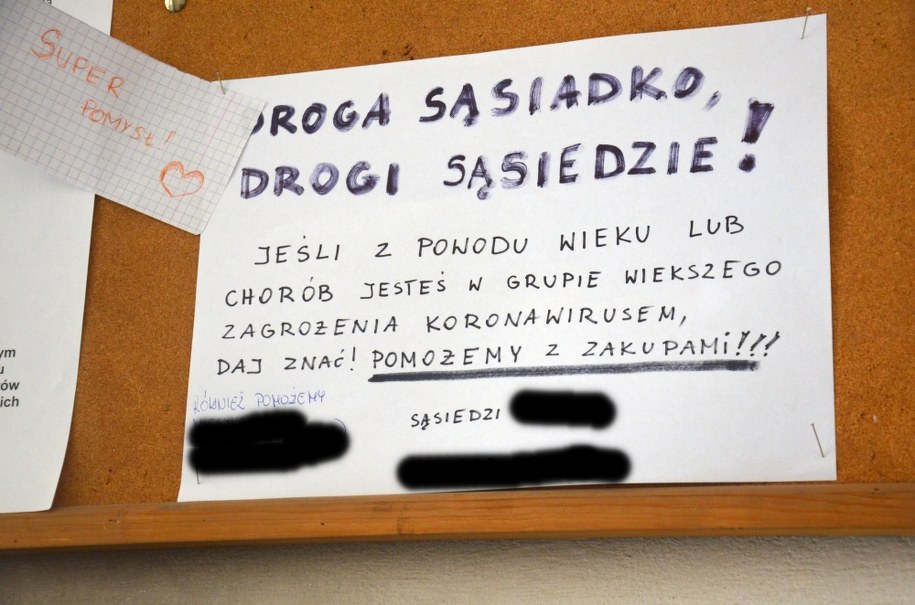 SUPER
POMYSŁ!
DROGA SĄSIADKO,
DROGI SĄSIEDZIE!
JEŚLI Z POWODU WIEKU LUB
CHORÓB JESTEŚ W GRUPIE WIEKSZEGO
ZAGROŻENIA KORONAWIRUSEM,
DAJ ZNAĆ! POMOŻEMY Z ZAKUPAMI!!!!
RÓWNIEŻ POMOŻEMY
SĄSIEDZI
ym
u
ów
ich